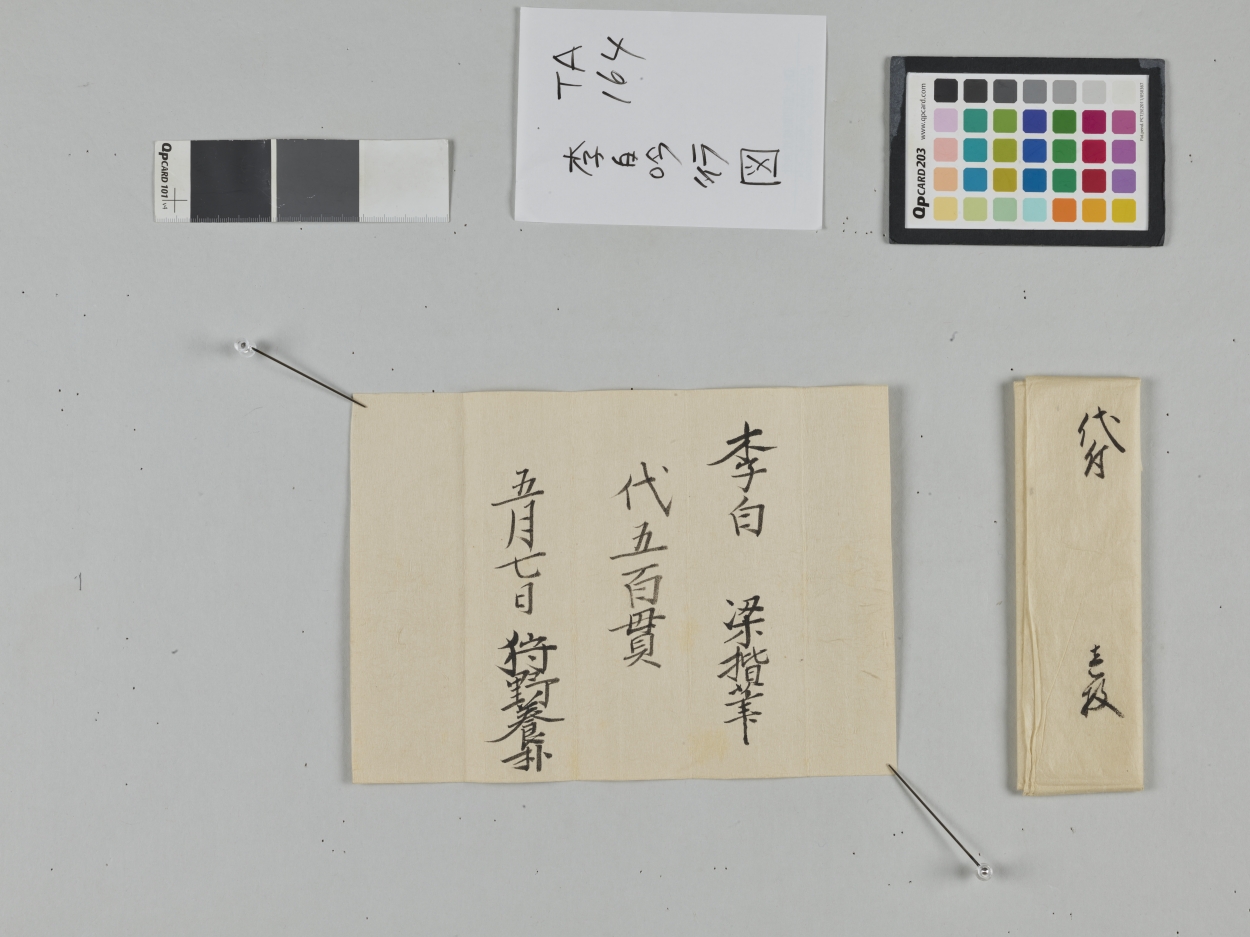 TA
164
李白吟
行
図
QPCARD 101 v3
www.qpcard.com
QPCARD203
李白　梁揩筆
代五百貫
五月七日　狩野養朴
代付　壱枚